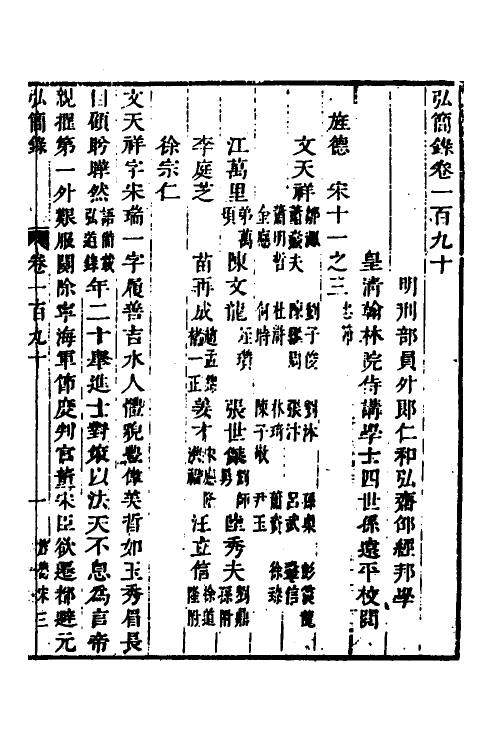 弘簡錄卷一百九十
明刑部員外郎仁和弘齋邵經邦學
皇清翰林院侍講學士四世孫遠平校閱
旌德 宋十一之三 忠節
文天祥 鄒㵯 劉子俊 劉沐 孫㮚 彭震龍 蕭燾夫 陳繼周 張汴 呂武 鞏信 蕭明哲 杜滸 林琦 蕭資 徐臻 金應 何時 陳子敬 尹玉
江萬里 弟萬頃 陳文龍 瓚 張世傑 劉師勇 陸秀夫 劉鼎孫附
李庭芝 苗再成 趙孟錦 褚一正 姜才 洪福 宋應隆 汪立信 徐道隆附
徐宗仁
文天祥字宋瑞一字履善吉水人體貌豐偉美皙如玉秀眉長
目顧盼曄然 語簡載弘道錄 年二十舉進士對策以法天不息為言帝
親擢第一外艱服闋除寧海軍節度判官董宋臣欲遷都避元
弘簡錄 卷一百九十 一 旌德宋三